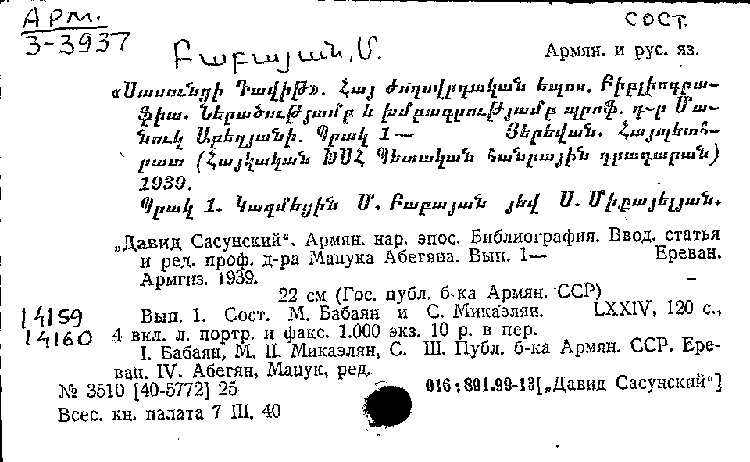 АРМ.
3-3937
СОСТ.
Բաբայան, Մ.
Армян. и рус. яз.
«Սասունցի Դավիթ». Հայ ժողովրդական եպոս. Բիբլիոգրա-
ֆիա. Ներածությամբ և խմբագրությամբ պրոֆ. դ-ր Մա-
նուկ Աբեղյանի. Պրակ 1— Յերեվան. Հայպետհ-
րատ (Հայկական ԽՍՀ Պետական հանրային գրադարան)
1939.
Պրակ 1. Կազմեցին Մ. Բաբայան յեվ Ս. Միքայելյան.
„Давид Сасунский“. Армян. нар. эпос. Библиография. Ввод. статья
и ред. проф. д-ра Манука Абегяна. Вып. 1— Ереван.
Армгиз. 1939.
22 см (Гос. публ. б-ка Армян. ССР)
14159
14160
Вып. 1. Сост. М. Бабаян и С. Микаэлян. LXXIV, 120 с.,
4 вкл. л. портр. и факс. 1.000 экз. 10 р. в пер.
I. Бабаян, М. II. Микаэлян, С. III. Публ. б-ка Армян. ССР, Ере-
ван. IV. Абегян, Манук, ред.
№ 3510 [40-5772] 25
016:891.99-13[„Давид Сасунский“]
Всес. кн. палата 7 III. 40